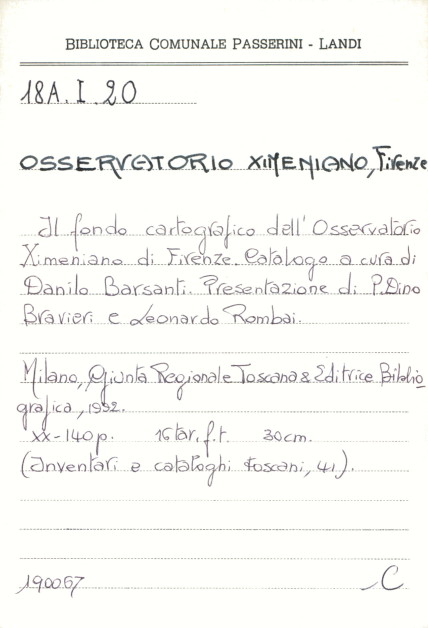 BIBLIOTECA COMUNALE PASSERINI - LANDI
18A.I.20
OSSERVATORIO XIMENIANO, Firenze
Il fondo cartografico dell'Osservatorio
Ximeniano di Firenze. Catalogo a cura di
Danilo Barsanti. Presentazione di P.Dino
Bravieri e Leonardo Rombai.
Milano, Giunta Regionale Toscana & Editrice Biblio
grafica, 1992.
XX-140p. 16 tav. f.t. 30cm.
(Inventari e cataloghi toscani, 41.).
190067 C